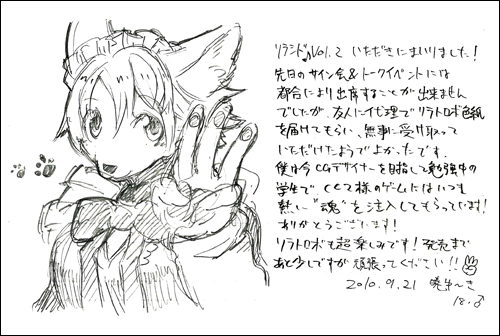 ソラシド♪Vol.2 いただきにまいりました!
先日のサイン会&トークイベントには
都合により出席することが出来ません
でしたが、友人に代理でソラトロボ色紙
を届けてもらい、無事に受け取って
いただけたようでよかったです。
僕は今CGデザイナーを目指して勉強中の
学生で、CC2様のゲームにはいつも
熱い"魂"を注入してもらっています!
ありがとうございます!
ソラトロボも超楽しみです!発売まで
あと少しですが頑張ってください!!
2010.9.21 暁ルーき
18.♂